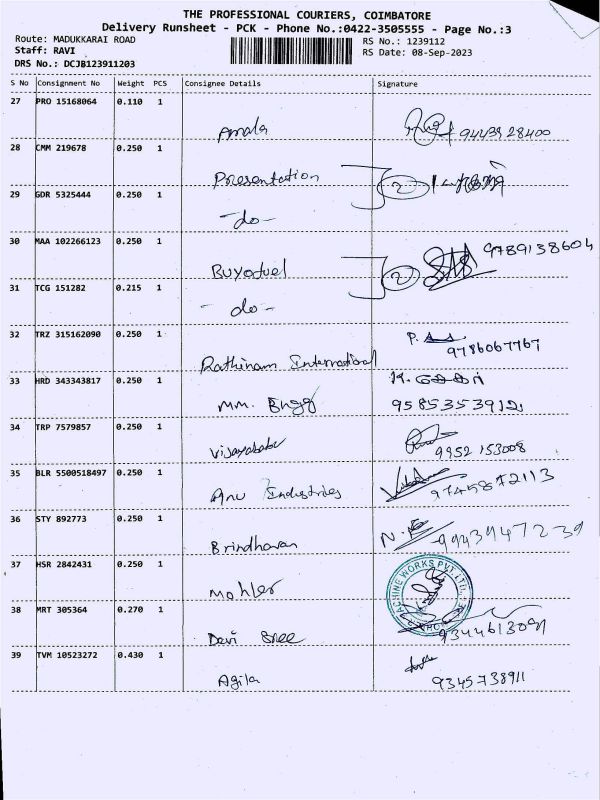 THE PROFESSIONAL COURIERS, COIMBATORE
Delivery Runsheet - PCK - Phone No.:0422-3505555 - Page No.:3
Route: MADUKKARAI ROAD
Staff: RAVI
DRS No.: DCJB123911203
RS No.: 1239112
RS Date: 08-Sep-2023
S No Consignment No Weight PCS Consignee Details Signature
27 PRO 15168064 0.110 1 Amala 9443928400
28 CMM 219678 0.250 1 Presentation 2
29 GDR 5325444 0.250 1 -do-
30 MAA 102266123 0.250 1 2 9789138604
31 TCG 151282 0.215 1 -do-
32 TRZ 315162090 0.250 1 Rathinam International 9786067767
33 HRD 343343817 0.250 1 MM. Engg 9585353912
34 TRP 7579857 0.250 1 Vijayababu 9952 153008
35 BLR 5500518497 0.250 1 Anu Industries 9745872113
36 STY 892773 0.250 1 Brindhavan 9943947239
37 HSR 2842431 0.250 1 Mahler MACHINE WORKS PVT. LTD.
38 MRT 305364 0.270 1 Devi Sree 9344613091
39 TVM 10523272 0.430 1 Agila 9345738911